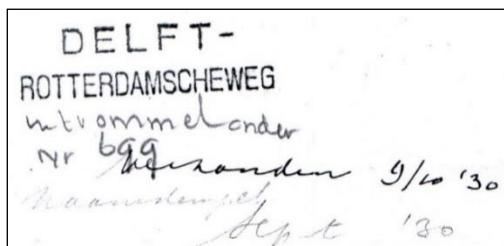 DELFT-
ROTTERDAMSCHEWEG
uitrommel onder
Nr 699
verzonden 9/10 '30
Naamstempel
Sept '30